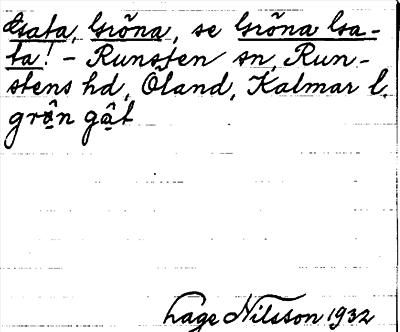 Gata, Gröna, se Gröna Ga-
ta! - Runsten sn, Run-
stens hd, Öland, Kalmar l.
grön gat
Lage Nilsson 1932